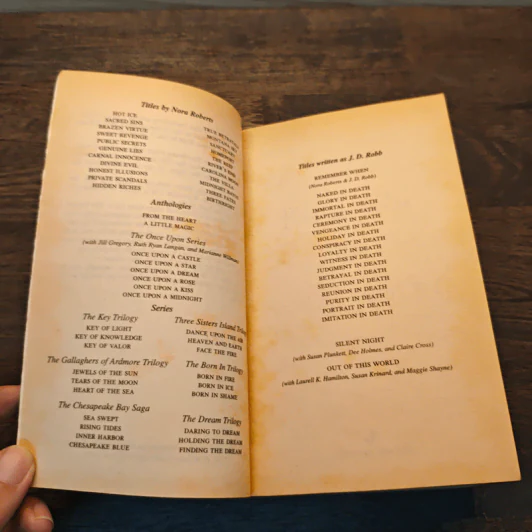 Titles by Nora Roberts
HOT ICE
SACRED SINS
BRAZEN VIRTUE
SWEET REVENGE
PUBLIC SECRETS
GENUINE LIES
CARNAL INNOCENCE
DIVINE EVIL
HONEST ILLUSIONS
PRIVATE SCANDALS
HIDDEN RICHES
TRUE BETRAYALS
MONTANA SKY
SANCTUARY
HOMEPORT
THE REEF
RIVER'S END
CAROLINA MOON
THE VILLA
MIDNIGHT BAYOU
THREE FATES
BIRTHRIGHT
Anthologies
FROM THE HEART
A LITTLE MAGIC
The Once Upon Series
(with Jill Gregory, Ruth Ryan Langan, and Marianne Willman)
ONCE UPON A CASTLE
ONCE UPON A STAR
ONCE UPON A DREAM
ONCE UPON A ROSE
ONCE UPON A KISS
ONCE UPON A MIDNIGHT
Series
The Key Trilogy
KEY OF LIGHT
KEY OF KNOWLEDGE
KEY OF VALOR
The Gallaghers of Ardmore Trilogy
JEWELS OF THE SUN
TEARS OF THE MOON
HEART OF THE SEA
The Chesapeake Bay Saga
SEA SWEPT
RISING TIDES
INNER HARBOR
CHESAPEAKE BLUE
Three Sisters Island Trilogy
DANCE UPON THE AIR
HEAVEN AND EARTH
FACE THE FIRE
The Born In Trilogy
BORN IN FIRE
BORN IN ICE
BORN IN SHAME
The Dream Trilogy
DARING TO DREAM
HOLDING THE DREAM
FINDING THE DREAM
Titles written as J. D. Robb
REMEMBER WHEN
(Nora Roberts & J. D. Robb)
NAKED IN DEATH
GLORY IN DEATH
IMMORTAL IN DEATH
RAPTURE IN DEATH
CEREMONY IN DEATH
VENGEANCE IN DEATH
HOLIDAY IN DEATH
CONSPIRACY IN DEATH
LOYALTY IN DEATH
WITNESS IN DEATH
JUDGMENT IN DEATH
BETRAYAL IN DEATH
SEDUCTION IN DEATH
REUNION IN DEATH
PURITY IN DEATH
PORTRAIT IN DEATH
IMITATION IN DEATH
SILENT NIGHT
(with Susan Plunkett, Dee Holmes, and Claire Cross)
OUT OF THIS WORLD
(with Laurell K. Hamilton, Susan Krinard, and Maggie Shayne)